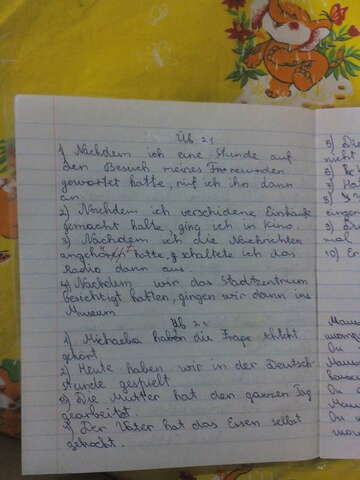 Üb. 21
1 Nachdem ich eine Stunde auf
den Besuch meines Freunden
gewartet hatte, rief ich ihn dann
an.
2) Nachdem ich verschidene Einkäufe
gemacht hatte, ging ich in Kino.
3) Nachdem ich die Nachrichten
angehört hatte, schaltete ich das
Radio dann aus.
4) Nachdem wir das Stadtzentrum
besichtigt hatten, gingen wir dann ins
Museum
Üb 2.
1) Michaela haben die Frage nicht
gehört.
2) Heute haben wir in der Deutsch-
stunde gespielt
3) Die Mutter hat den ganzen Tag
gearbeitet.
4) Der Vater hat das Essen selbst
gekocht.
5) Die
nicht
6)
7) Ha
8)
9) Di
mal
10) Er
Mau
Du
Mau
Du